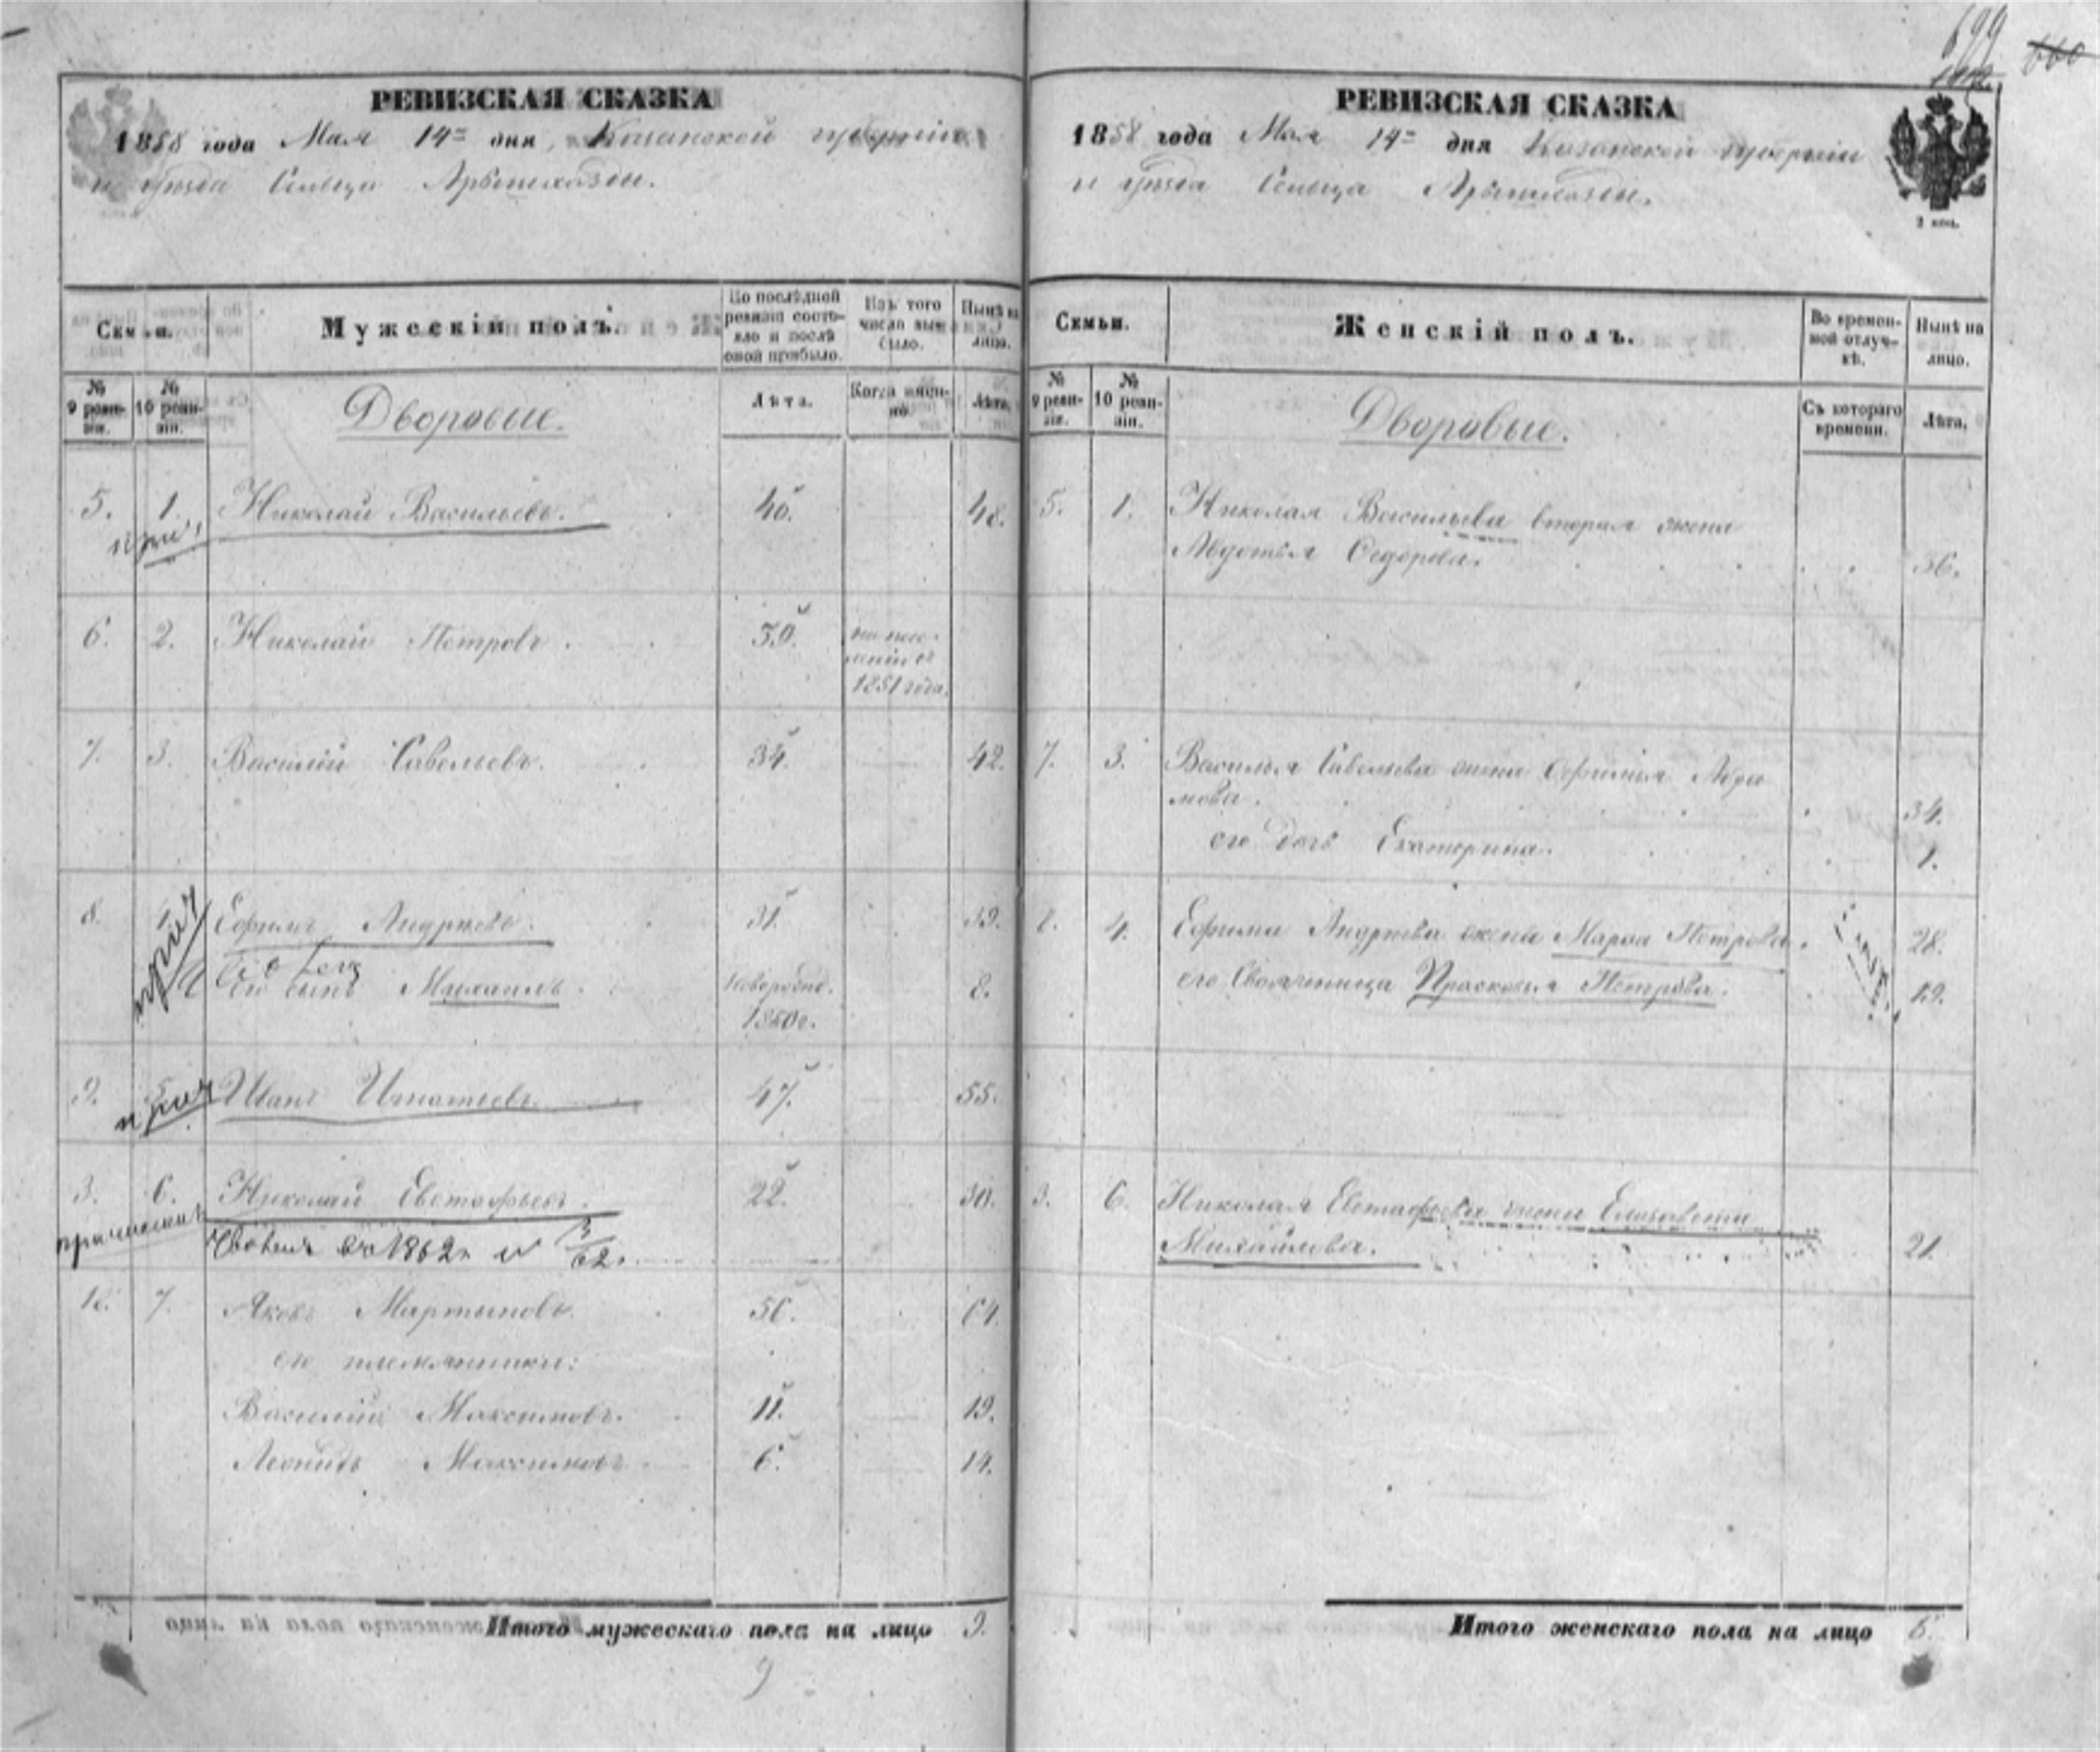 699
660
РЕВИЗСКАЯ СКАЗКА
1858 года Мая 14го дня, Казанской губерніи
и уѣзда Сельца
Семьи.
Мужескій полъ.
По послѣдней ревизіи состояло и послѣ оной прибыло.
Изъ того числа выбыло.
Нынѣ на лицо.
№ 9 ревизіи.
№ 10 ревизіи.
Дворовые.
Лѣта.
Когда именно.
Лѣта.
5. 1. Николай Васильевъ. 40. 48.
6. 2. Николай Петровъ. 39.
1851 года.
7. 3. Василій Савельевъ. 34. 42.
8. 4. Ефимъ Андреевъ. 31. 39.
Его сынъ Михаилъ. Новорожд. 8.
1850 г.
9. 5. Иванъ Игнатьевъ. 47. 55.
3. 6. Николай Евстафьевъ. 22. 30.
7. Яковъ Мартыновъ. 56. 64.
его племянники:
Василій Максимовъ. 11. 19.
Леонидъ Максимовъ. 6. 14.
Итого мужескаго пола на лицо 9.
9
РЕВИЗСКАЯ СКАЗКА
1858 года Мая 14го дня Казанской губерніи
и уѣзда Сельца
2 коп.
Семьи.
Женскій полъ.
Во временной отлучкѣ.
Нынѣ на лицо.
№ 9 ревизіи.
№ 10 ревизіи.
Дворовые.
Съ котораго времени.
Лѣта.
5. 1. Николая Васильева вторая жена
Авдотья Федорова. 36.
7. 3. Василья Савельева жена Афимья Абра
мова. 34.
его дочь Екатерина. 1.
8. 4. Ефима Андреева жена Марфа Петрова. 28.
его Своячиница Прасковья Петрова. 19.
3. 6. Николая Евстафьева жена Елизавета
Михайлова. 21.
Итого женскаго пола на лицо 6.